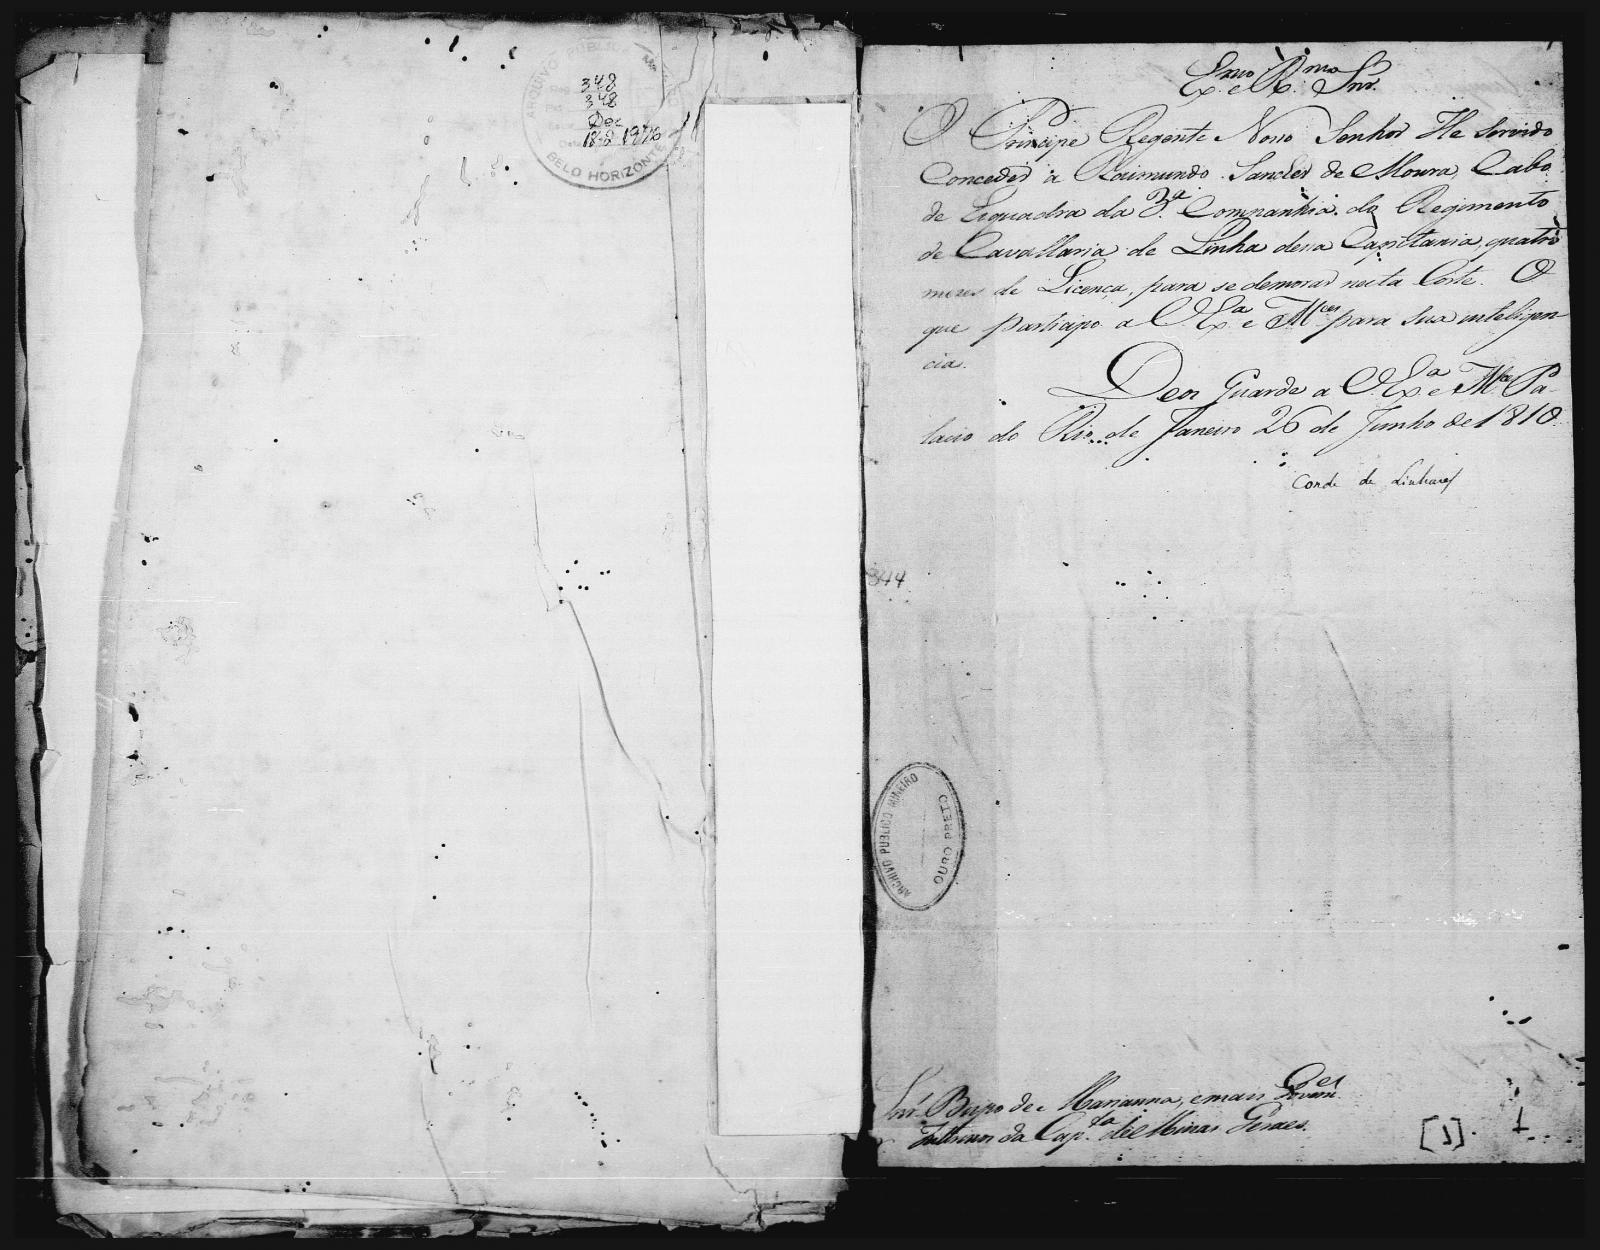 ARQUIVO PUBLICO
348
348
Dec
1818 1976
BELO HORIZONTE
Exmo e Rmo Snr.
O Principe Regente Nosso Senhor He Servido
Conceder a Raimundo Sanches de Moura, Cabo
de Esquadra da 3.ª Companhia do Regimento
de Cavallaria de Linha dessa Capitania, quatro
mezes de Licença, para se demorar nesta Corte. O
que participo a V. Ex.ª e Mces para sua intelligen
cia.
Deos Guarde a V. Ex.ª e Mces Pa-
lacio do Rio de Janeiro 26 de Junho de 1810.
Conde de Linhares
344
ARCHIVO PUBLICO MINEIRO
OURO PRETO
Snr. Bispo de Marianna, e mais Governes
Interinos da Cap.ta de Minas Geraes.
[1]
1